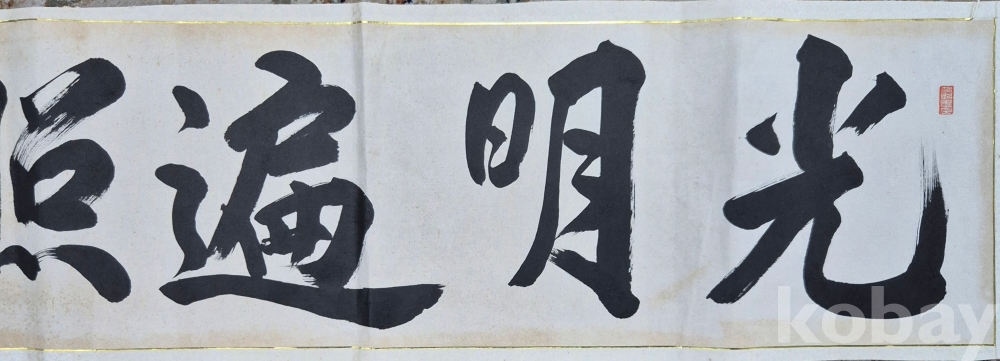 光明遍照
kobay